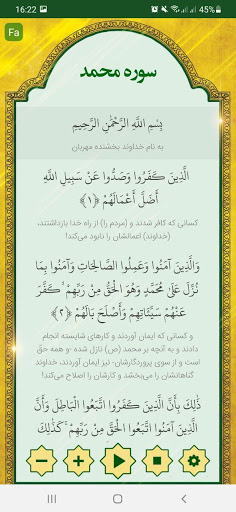 16:22
45%
Fa
سوره محمد
بِسْمِ اللَّهِ الرَّحْمَٰنِ الرَّحِيمِ
به نام خداوند بخشنده مهربان
الَّذِينَ كَفَرُوا وَصَدُّوا عَنْ سَبِيلِ اللَّهِ
أَضَلَّ أَعْمَالَهُمْ ﴿١﴾
کسانی که کافر شدند و (مردم را) از راه خدا بازداشتند،
(خداوند) اعمالشان را نابود می‌کند!
وَالَّذِينَ آمَنُوا وَعَمِلُوا الصَّالِحَاتِ وَآمَنُوا بِمَا
نُزِّلَ عَلَىٰ مُحَمَّدٍ وَهُوَ الْحَقُّ مِنْ رَبِّهِمْ ۙ كَفَّرَ
عَنْهُمْ سَيِّئَاتِهِمْ وَأَصْلَحَ بَالَهُمْ ﴿٢﴾
و کسانی که ایمان آوردند و کارهای شایسته انجام
دادند و به آنچه بر محمد (ص) نازل شده -و همه حقّ
است و از سوی پروردگارشان- نیز ایمان آوردند، خداوند
گناهانشان را می‌بخشد و کارشان را اصلاح می‌کند!
ذَٰلِكَ بِأَنَّ الَّذِينَ كَفَرُوا اتَّبَعُوا الْبَاطِلَ وَأَنَّ
الَّذِينَ آمَنُوا اتَّبَعُوا الْحَقَّ مِنْ رَبِّهِمْ ۚ كَذَٰلِكَ